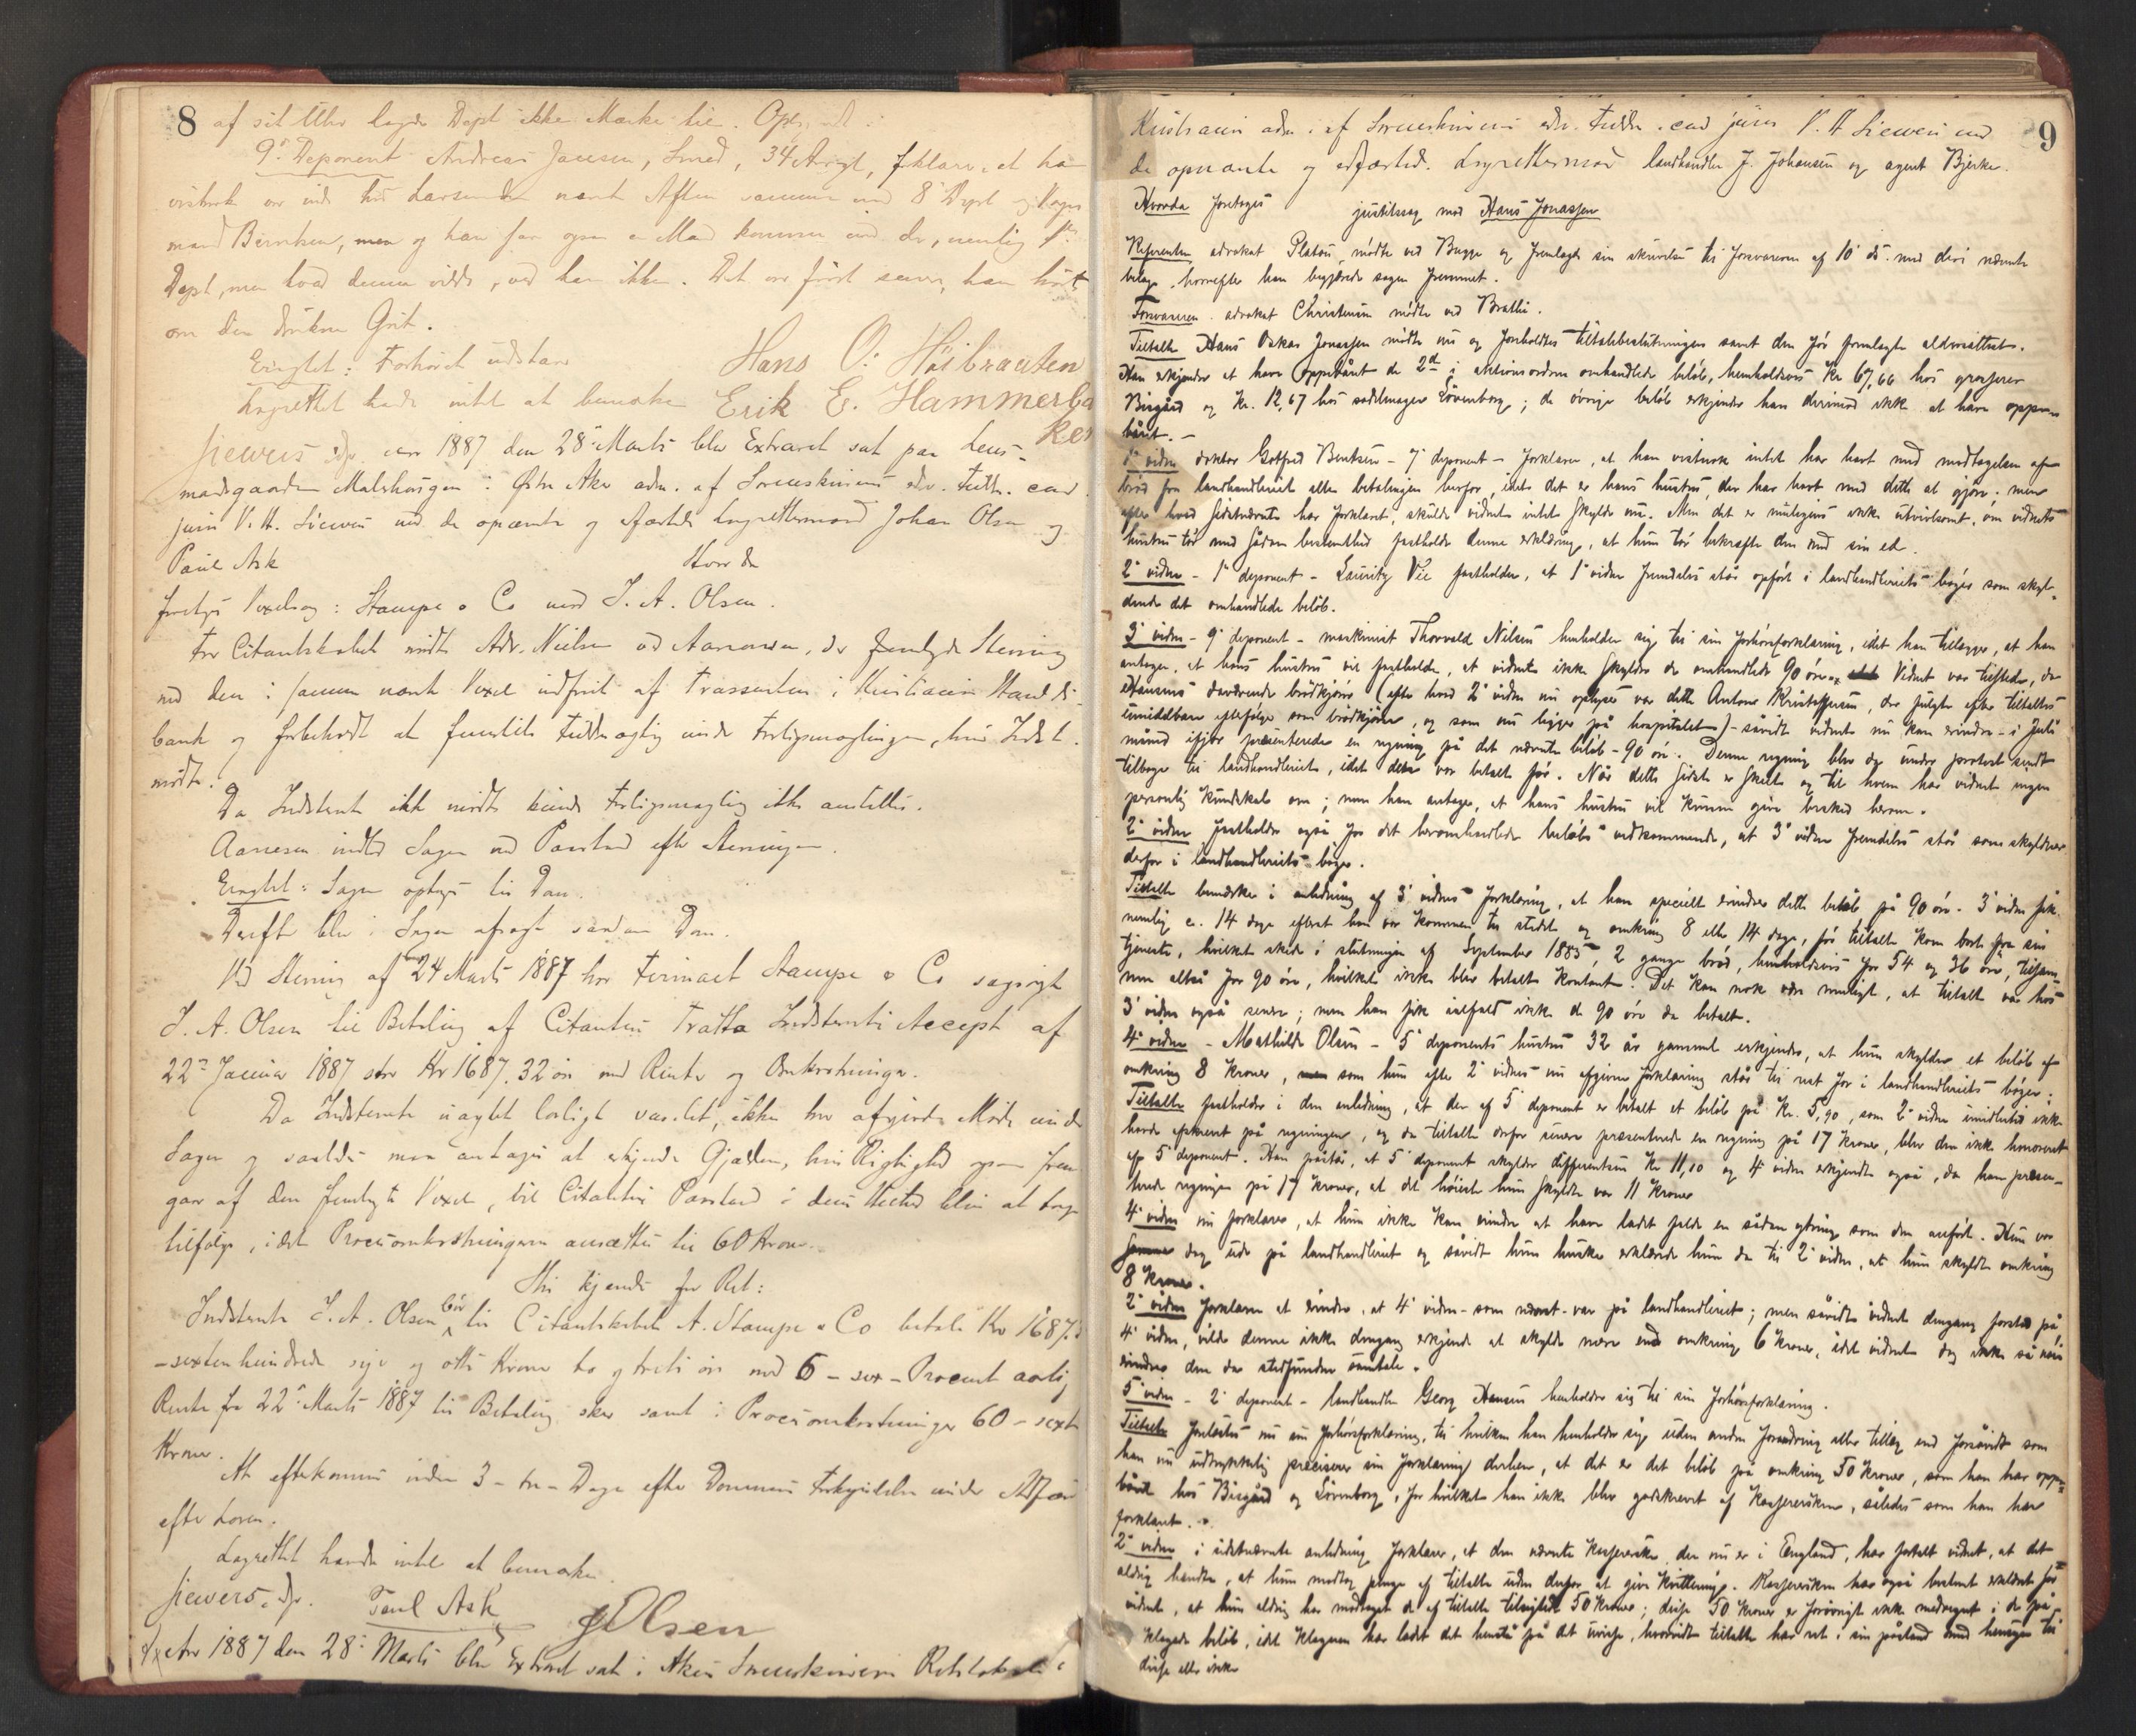 8 af sit Uhr lagde Dept ikke Mærke til. Opl. vedt.
9' Deponent Andreas Jansen, Smed, 34 Aar gl, forklarer, at han
var inde hos Larsen den nævnte Aften sammen med 8' Dept og Vogn
mand Berntsen, men og han saa ogsaa en Mand komme ind der, nemlig 1ste
Dept, men hvad denne vilde, ved han ikke. Det var først senere, han hørte
om den drukne Gut.
Eragtet: Forhøret udstaar Hans O. Høibraaten
Lagrettet havde intet at bemærke Erik E. Hammerba
ken
Siewers dp. Aar 1887 den 28' Marts blev Extraret sat paa Lens-
mandsgaarden Malerhaugen i Østre Aker adm. af Sorenskriverens edsv. Fuldm. cand.
juris V. A. Siewers med de opnævnte og edfæstede Lagrettesmænd Johan Olsen og
Paul Ask Hvorda
foretoges Vexelsag: Stampe & Co mod J. A. Olsen.
For Citantskabet mødte Adv. Nielsen ved Aanesen, der fremlagde Stevning
med den i samme nævnte Vexel udfærd. af Trassenten i Kristiania Handels-
bank og forbeholdt at fremstille Fuldmægtig under Forligsmæglingen, hvis Indst.
mødte.
Da Indstevnte ikke mødte kunde Forligsmægling ikke anstilles.
Aanesen indlod Sagen med Paastand efter Stevningen.
Eragtet: Sagen optages til Dom.
Derefter blev i Sagen afsagt saadan Dom.
Ved Stevning af 24 Marts 1887 har Firmaet Stampe & Co sagsøgt
J. A. Olsen til Betaling af Citantens Tratta Indstevntes Accept af
22de Januar 1887 stor Kr 1687.32 øre med Renter og Omkostninger.
Da Indstevnte uagtet lovligt varslet, ikke har afgivet Møde under
Sagen og saaledes maa antages at erkjende Gjælden, hvis Rigtighed ogsaa frem
gaar af den fremlagte Vexel, vil Citantens Paastand i dens Helhed blive at tage
tilfølge, idet Procesomkostningerne ansættes til 60 Kroner.
Thi kjendes for Ret:
Indstevnte J. A. Olsen bør til Citantskabet A. Stampe & Co betale Kr 1687.3
-sexten hundrede syv og otti Kroner to og treti øre med 6 - sex - Procent aarlig
Rente fra 22' Marts 1887 til Betaling sker samt i Procesomkostninger 60 - sexti
Kroner.
At efterkommes inden 3 - tre - Dage efter Dommens Forkyndelse under Adfærd
efter Loven.
Lagrettet havde intet at bemærke.
Siewers, dp. Paul Ask JOlsen
Aar 1887 den 28' Marts blev Extraret sat i Akers Sorenskriveri Retslokale i
9
Kristiania adm. af Sorenskriverens edsv. Fuldm. cand juris V. A Siewers med
de opnævnte og edfæstede Lagrettesmænd landhandler J. Johansen og agent Bjerke.
Hvorda foretoges justitssag mod Hans Jonassen
Referenten advokat Platou mødte ved Bugge og fremlagde sin skrivelse til forsvareren af 10' ds. med deri nævnte
bilage, hvorefter han begjærede sagen fremmet.
Forsvareren advokat Christensen mødte ved Brathi.
Tiltalte Hans Oskar Jonassen mødte nu og foreholdtes tiltalebeslutningen samt den før fremlagte aldersattest.
Han erkjender at have oppebåret de 2de i aktionsordren omhandlede beløb, henholdsvis Kr. 67,66 hos grosserer
Bisgård og Kr. 12,67 hos sadelmager Lövenborg; de övrige beløb erkjender han derimod ikke at have oppe-
båret. -
1' vidne doktor Gotfred Bentsen - 7' deponent - forklarer, at han visstnok intet har havt med modtagelsen af
brød fra landhandleriet eller betalingen herfor, idet det er hans hustru, der har havt med dette at gjøre; men
efter hvad sidstnævnte har forklaret, skulde vidnet intet skylde nu. Men det er muligens ikke utvivlsomt, om vidnets
hustru tør med sådan bestemthed fastholde denne erklæring, at hun tør bekræfte den med sin ed.
2' vidne - 1' deponent - Lauritz Vie fastholder, at 1' vidne fremdeles står opført i landhandleriets bøger som skyl-
dende det omhandlede beløb.
3' vidne - 9' deponent - maskinist Thorvald Nilsen henholder sig til sin forhørsforklaring, idet han tillægger, at han
antager, at hans hustru vil fastholde, at vidnet ikke skylder de omhandlede 90 øre. Vidnet var tilstede, da
Hansens daværende brødkjører (efter hvad 2' vidne nu oplyser var dette Anton Kristoffersen, der fulgte efter tiltaltes
umiddelbare efterfølger som brødkjører, og som nu ligger på hospitalet) - såvidt vidnet nu kan erindre - i Juli
måned ifjor præsenterede en regning på det nævnte beløb - 90 øre. Denne regning blev dog under protest sendt
tilbage til landhandleriet, idet den var betalt før. Når dette sidste er skeet og til hvem har vidnet ingen
personlig kundskab om; men han antager, at hans hustru vil kunne give besked herom.
2' vidne fastholder også for det heromhandlede beløbs vedkommende, at 3' vidne fremdeles står som skyldner
derfor i landhandleriets bøger.
Tiltalte bemærker i anledning af 3' vidnes forklaring, at han specielt erindrer dette beløb på 90 øre. 3' vidne fik
nemlig c. 14 dage efterat han var kommen til stedet og omkring 8 eller 14 dage, før tiltalte kom bort fra sin
tjeneste, hvilket skede i slutningen af September 1885, 2 gange brød, henholdsvis for 54 og 36 øre, tilsam-
men altså for 90 øre, hvilket ikke blev betalt kontant. Det kan nok være muligt, at tiltalte var hos
3' vidne også senere; men han fik ialfald ikke de 90 øre da betalt.
4' vidne - Mathilde Olsen - 5' deponents hustru 32 år gammel erkjender, at hun skylder et beløb af
omkring 8 kroner, som hun efter 2' vidnes nu afgivne forklaring står til rest for i landhandleriets bøger.
Tiltalte fastholder i den anledning, at der af 5' deponent er betalt et beløb på Kr. 5,90, som 2' vidne imidlertid ikke
havde afskrevet på regningen, og da tiltalte derfor senere præsenterede en regning på 17 kroner, blev den ikke honoreret
af 5' deponent. Han påstår, at 5' deponent skylder differentsen Kr 11,10 og 4' vidne erkjendte også, da han præsen-
terede regningen på 17 kroner, at det høieste hun skyldte var 11 kroner
4' vidne nu forklarer, at hun ikke kan erindre at have ladet falde en sådan ytring som den anført. Hun var
samme dag ude på landhandleriet og såvidt hun husker erklærede hun da til 2' vidne, at hun skyldte omkring
8 kroner.
2' vidne forklarer at erindre, at 4' vidne - som nævnt - var på landhandleriet; men såvidt vidnet dengang forstod på
4' vidne, vilde denne ikke dengang erkjende at skylde mere end omkring 6 kroner, idet vidnet dog ikke så nøie
erindrer den da stedfundne samtale.
5' vidne - 2' deponent - landhandler Georg Hansen henholder sig til sin forhørsforklaring.
Tiltalte forelæstes nu sin forhørsforklaring, til hvilken han henholder sig uden anden forandring eller tillæg end forsåvidt som
han nu udtrykkelig præciserer sin forklaring derhen, at det er det beløb på omkring 50 kroner, som han har oppe-
båret hos Bisgård og Lövenborg, for hvilket han ikke blev godskrevet af kassererksen, således som han har
forklaret.
2' vidne i sidstnævnte anledning forklarer, at den nævnte kassererske, der nu er i England, har fortalt vidnet, at det
aldrig hændte, at hun modtog penge af tiltalte uden derfor at give kvittering. Kassererksen har også bestemt erklæret for
vidnet, at hun aldrig har modtaget de af tiltalte 50 kroner; disse 50 kroner er forøvrigt ikke medregnet i de på-
klagede beløb, idet klageren har ladet det henstå på det uvisse, hvorvidt tiltalte har ret i sin påstand med hensyn til
disse eller ikke